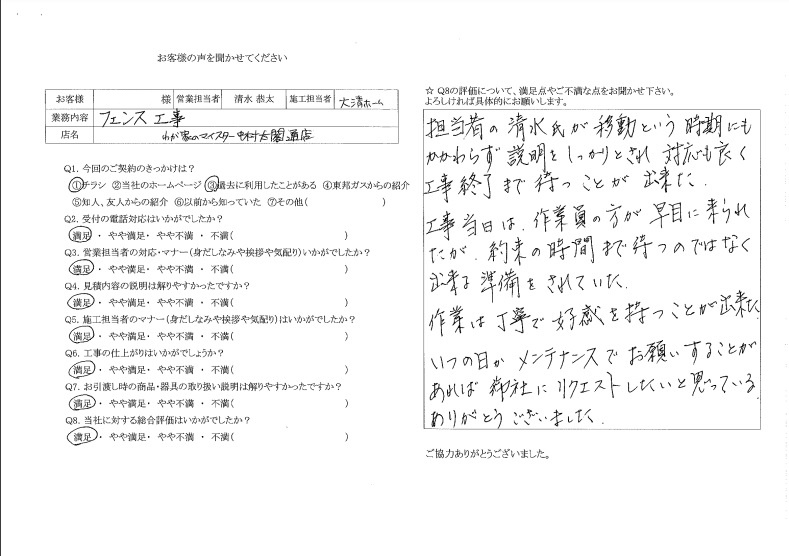 お客様の声を聞かせてください
お客様 様 営業担当者 清水 恭太 施工担当者 大清ホーム
業務内容 フェンス工事
店名 わが家のマイスター中村太閤通店
Q1. 今回のご契約のきっかけは?
①チラシ ②当社のホームページ ③過去に利用したことがある ④東邦ガスからの紹介
⑤知人、友人からの紹介 ⑥以前から知っていた ⑦その他( )
Q2. 受付の電話対応はいかがでしたか?
満足 ・ やや満足・ やや不満 ・ 不満( )
Q3. 営業担当者の対応・マナー(身だしなみや挨拶や気配り)いかがでしたか?
満足 ・ やや満足・ やや不満 ・ 不満( )
Q4. 見積内容の説明は解りやすかったですか?
満足 ・ やや満足・ やや不満 ・ 不満( )
Q5. 施工担当者のマナー(身だしなみや挨拶や気配り)はいかがでしたか?
満足 ・ やや満足・ やや不満 ・ 不満( )
Q6. 工事の仕上がりはいかがでしょうか?
満足 ・ やや満足・ やや不満 ・ 不満( )
Q7. お引渡し時の商品・器具の取り扱い説明は解りやすかったですか?
満足 ・ やや満足・ やや不満 ・ 不満( )
Q8. 当社に対する総合評価はいかがでしたか?
満足 ・ やや満足・ やや不満 ・ 不満( )
☆ Q8の評価について、満足点やご不満な点をお聞かせ下さい。
よろしければ具体的にお願いします。
担当者の清水氏が移動という時期にも
かかわらず説明をしっかりとされ対応も良く
工事終了まで待つことが出来た.
工事当日は、作業員の方が早目に来られ
たが、約束の時間まで待つのではなく
出来る準備をされていた.
作業は丁寧で好感を持つことが出来た.
いつの日かメンテナンスでお願いすることが
あれば御社にリクエストしたいと思っている.
ありがとうございました.
ご協力ありがとうございました。